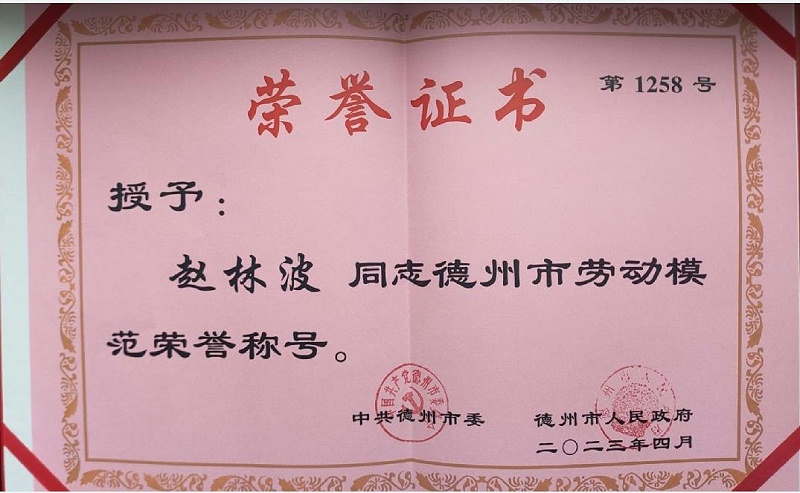 荣誉证书
第 1258 号
授予：
赵林波 同志德州市劳动模
范荣誉称号。
中共德州市委 德州市人民政府
二〇二三年四月